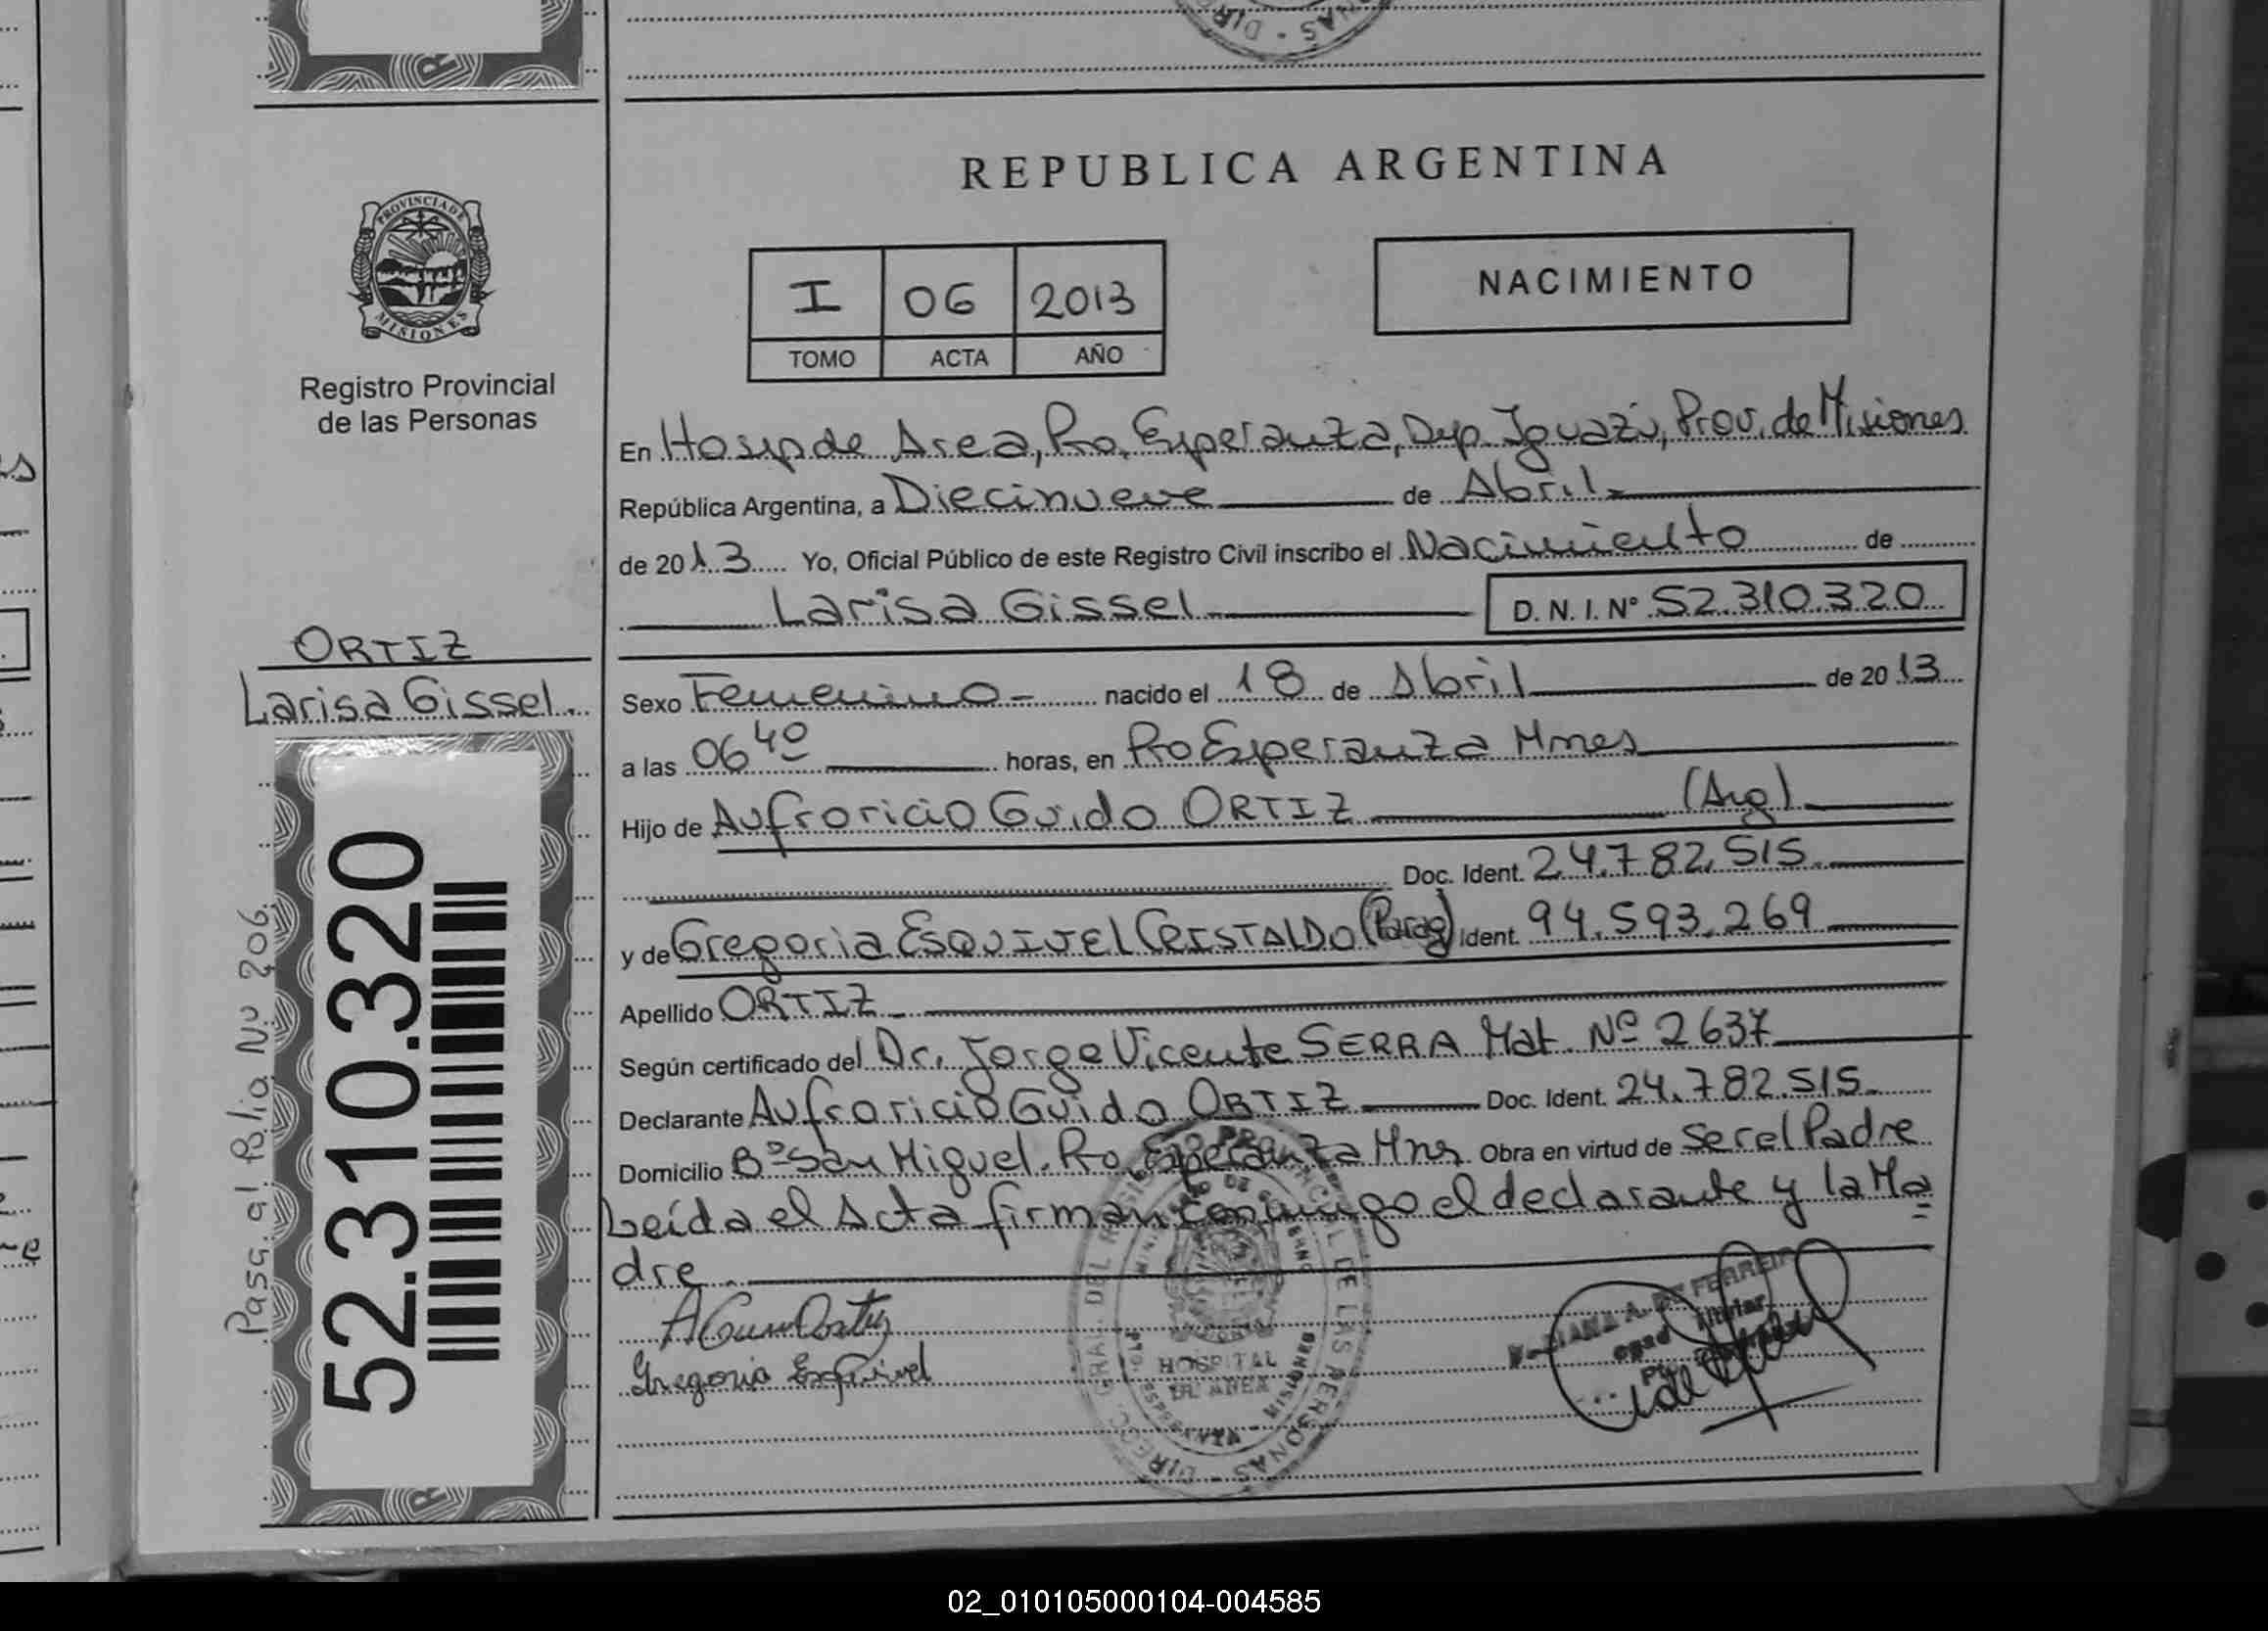 REPUBLICA ARGENTINA
PROVINCIA DE
MISIONES
Registro Provincial
de las Personas
I 06 2013
TOMO ACTA AÑO
NACIMIENTO
En Hosp de Area, Pto. Esperanza, Dep. Iguazú, Prov. de Misiones
República Argentina, a Diecinueve de Abril
de 2013 Yo, Oficial Público de este Registro Civil inscribo el Nacimiento de
Larisa Gissel D. N. I. Nº 52.310.320
ORTIZ
Larisa Gissel.
Sexo Femenino nacido el 18 de Abril de 2013
a las 06 40 horas, en Pto Esperanza Mnes
Hijo de Aufroricio Guido ORTIZ (Arg)
Doc. Ident. 24.782.515
y de Gregoria ESQUIVEL CRISTALDO (Parag) Ident. 94.593.269
Apellido ORTIZ
Según certificado del Dr. Jorge Vicente SERRA Mat. Nº 2637
Declarante Aufroricio Guido ORTIZ Doc. Ident. 24.782.515
Domicilio Bº San Miguel. Pto. Esperanza Mns Obra en virtud de Ser el Padre
Leída el Acta firman conmigo el declarante y la Ma
dre.
Gregoria Esquivel
52.310.320
Pasa al Folio Nº 206
HOSPITAL
DE AREA
DE FERREIRA
02_010105000104-004585